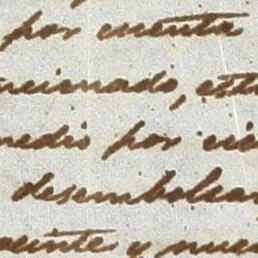 por cuenta
ncionado, est
medio por cie
desembolsar
veinte y nuev